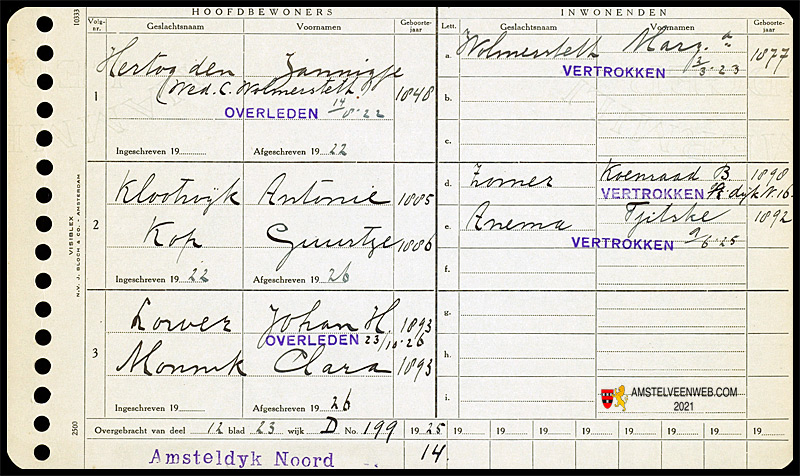 HOOFDBEWONERS
INWONENDEN
Volg-nr. Geslachtsnaam Voornamen Geboorte-jaar
Lett. Geslachtsnaam Voornamen Geboorte-jaar
10333
1 Hertog den Jannigje
(Wed. C. Wolmerstett) 1848
OVERLEDEN 14/8-22
Ingeschreven 19 Afgeschreven 19 22
2 Klootwijk Antonie 1885
Kop Guurtje 1886
Ingeschreven 19 22 Afgeschreven 19 26
3 Louwer Johan H. 1893
OVERLEDEN 23/10-26
Monnik Clara 1893
Ingeschreven 19 Afgeschreven 19 26
a. Wolmerstett Marg. a 1877
VERTROKKEN 2/3-23
b.
c.
d. Zomer Koenraad B. 1898
VERTROKKEN dijk N. 16
e. Anema Tjitske 1892
VERTROKKEN 9/6-25
f.
g.
h.
i.
VISIBLEX
N.V. J. BLOCH & CO. AMSTERDAM
2500
AMSTELVEENWEB.COM
2021
Overgebracht van deel 12 blad 23 wijk D No. 199 19 25 19 19 19 19 19 19 19
Amsteldyk Noord 14.